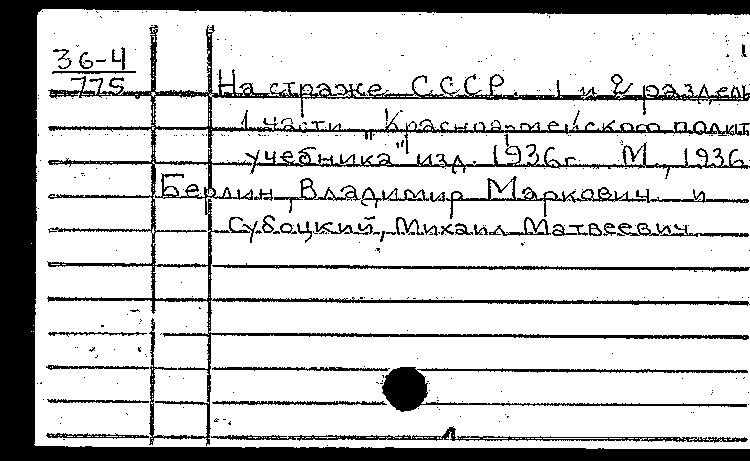 36-4
775
На страже СССР. 1 и 2 раздель
1 части "Красноармейского полит
учебника" изд. 1936г. М., 1936.
Берлин, Владимир Маркович и
Субоцкий, Михаил Матвеевич